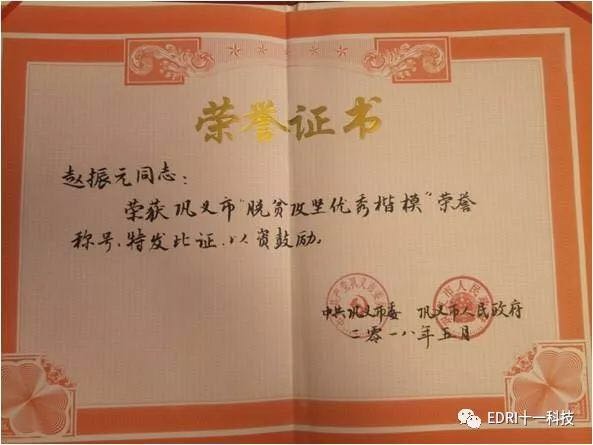 荣誉证书
赵振元同志：
荣获巩义市"脱贫攻坚优秀楷模"荣誉
称号、特发此证、以资鼓励。
中共巩义市委 巩义市人民政府
二零一八年五月
EDRI十一科技